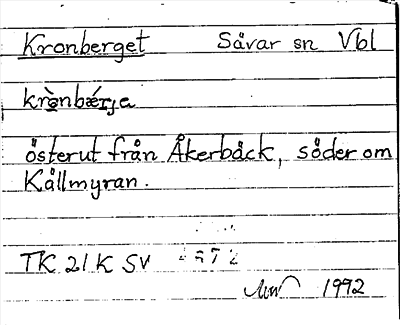 Kronberget Sävar sn Vbl
krònbǽrje
österut från Åkerbäck, söder om
Källmyran.
TK 21 K SV
1992